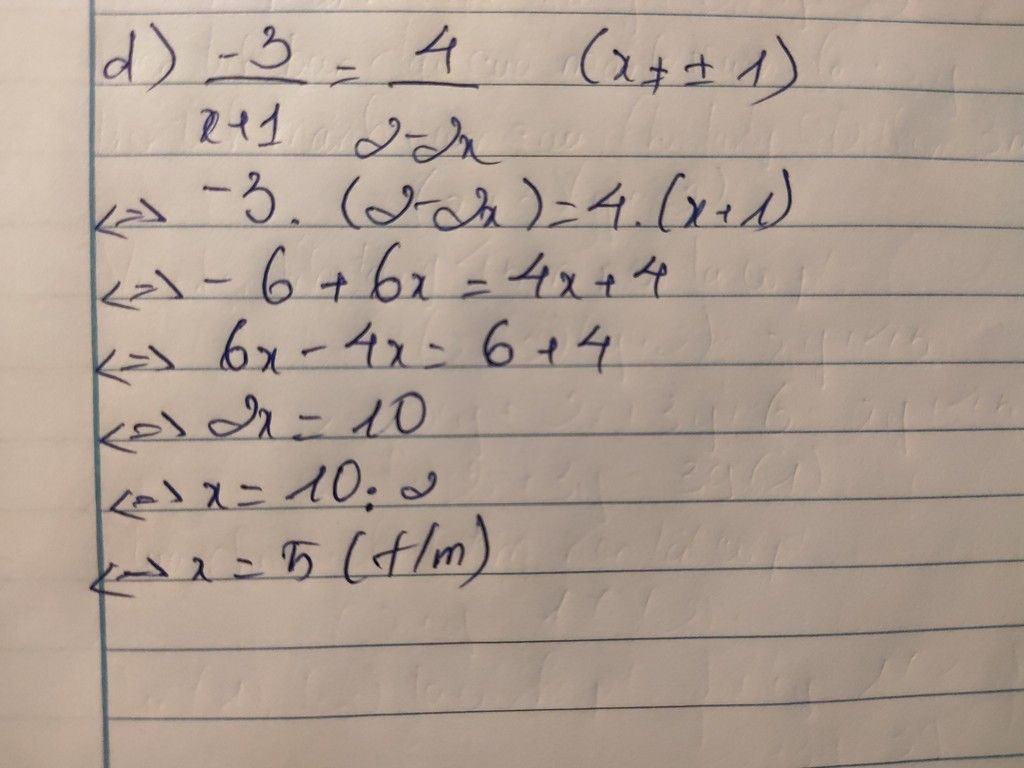 d) -3/(x+1) = 4/(2-2x) (x ≠ ± 1)
<=> -3. (2-2x) = 4.(x+1)
<=> - 6 + 6x = 4x+4
<=> 6x - 4x = 6 + 4
<=> 2x = 10
<=> x = 10 : 2
<=> x = 5 (t/m)